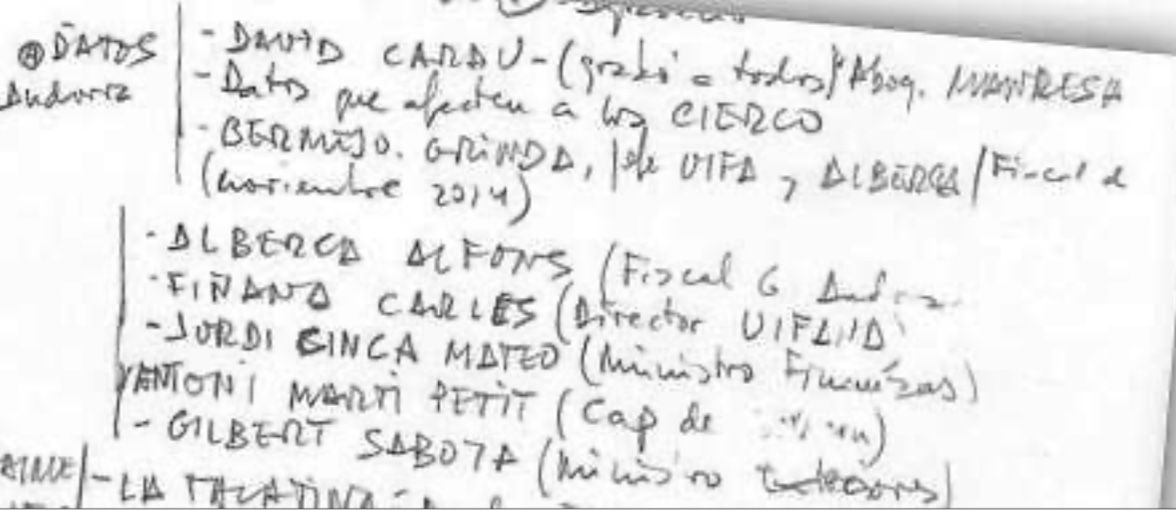 ⊕ DATOS Andorra
- DAVID CARDU - (grabó a todos) Abog. MANRESA
- Datos que afecten a los CIERCO
- BERMEJO. GRINDA, Jefe UIFA y ALBERCA / Fiscal
(noviembre 2014)
- ALBERCA ALFONS (Fiscal G
- FIÑANA CARLES (Director UIFAND
- JORDI CINCA MATEO (Ministro Finanzas)
ANTONI MARTÍ PETIT (Cap de
- GILBERT SABOYA (Ministro
- LA